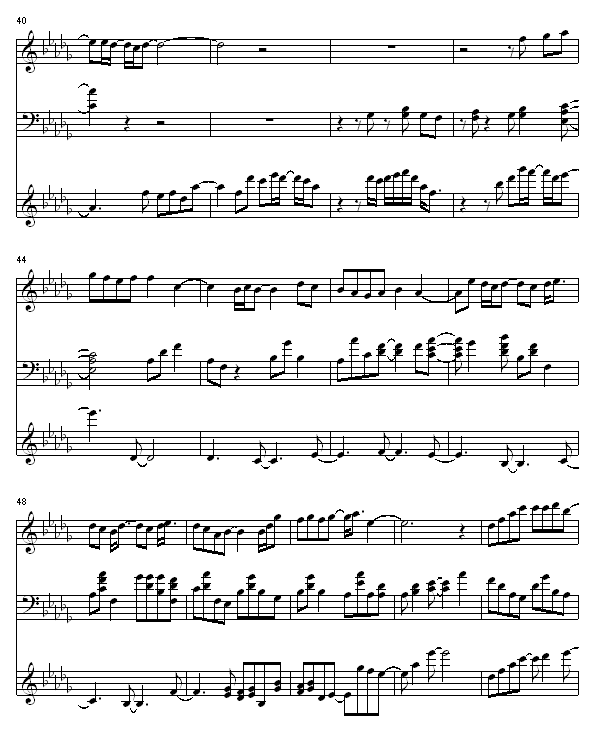 40
44
48